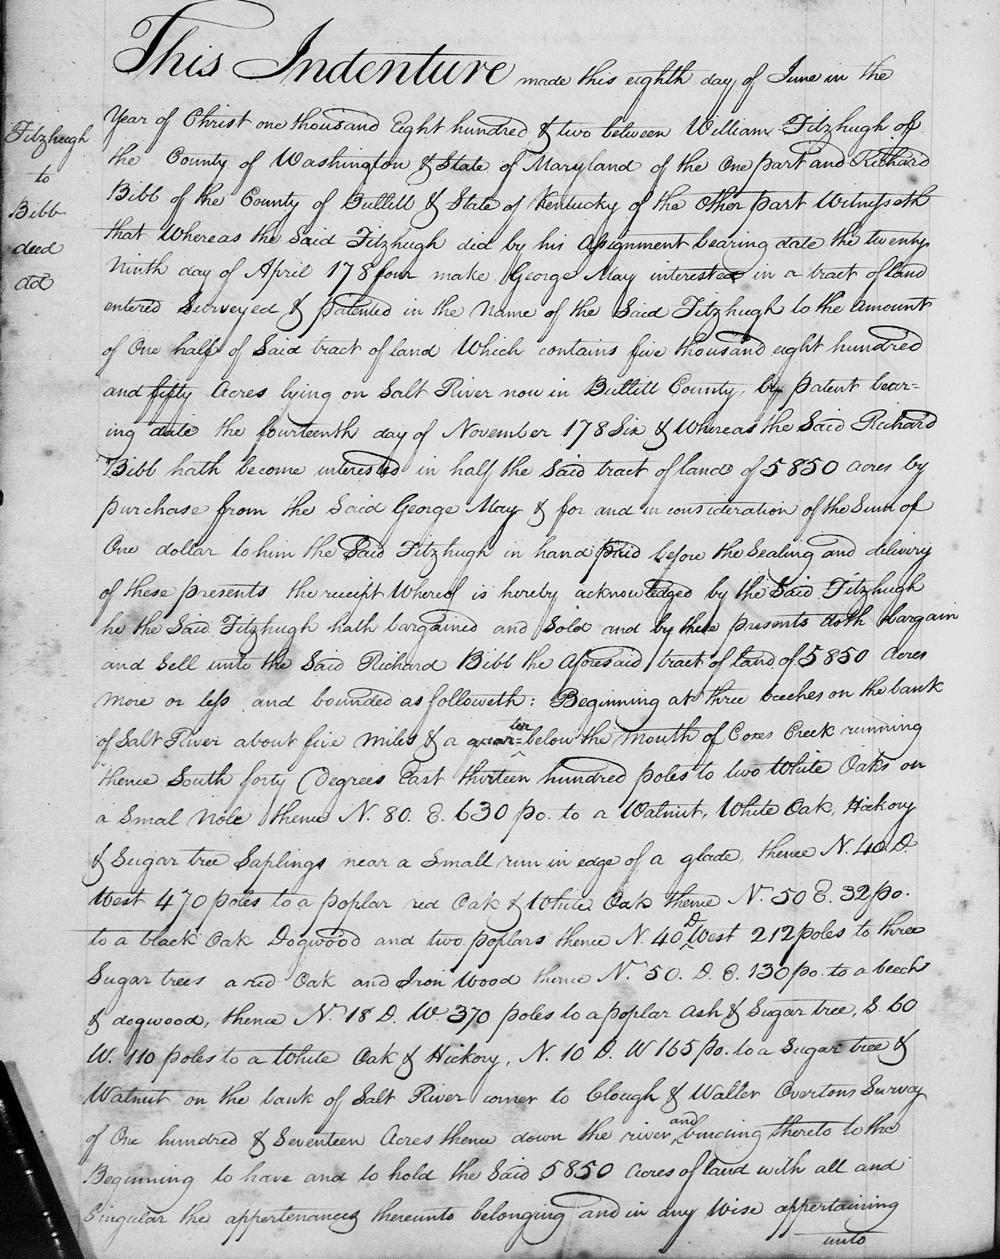 This Indenture made this eighth day of June in the
Year of Christ one thousand Eight hundred & two between William Fitzhugh of
the County of Washington & State of Maryland of the One part and Richard
Bibb of the County of Bullitt & State of Kentucky of the Other part Witnesseth
that Whereas the Said Fitzhugh did by his Assignment bearing date the twenty
Ninth day of April 178four make George May interested in a tract of land
entered Surveyed & patented in the Name of the Said Fitzhugh to the amount
of One half of Said tract of land Which contains five thousand eight hundred
and fifty Acres lying on Salt River now in Bullitt County, by patent bear=
ing date the fourteenth day of November 178Six & Whereas the Said Richard
Bibb hath become interested in half the Said tract of land of 5850 acres by
purchase from the Said George May & for and in consideration of the Sum of
One dollar to him the Said Fitzhugh in hand paid before the Sealing and delivery
of these presents the receipt Whereof is hereby acknowledged by the Said Fitzhugh
he the Said Fitzhugh hath bargained and Sold and by these presents doth bargain
and Sell unto the Said Richard Bibb the Aforesaid tract of land of 5850 acres
more or less and bounded as followeth: Beginning at three beeches on the bank
of Salt River about five Miles & a quarter below the Mouth of Coxes Creek running
thence South forty Degrees East thirteen hundred poles to two White Oaks on
a Smal Nole thence N. 80. E. 630 po. to a Walnut, White Oak, Hickory
& Sugar tree Saplings near a Small run in edge of a glade, thence N. 40. D.
West 470 poles to a poplar red Oak & White Oak thence N. 50 E. 32 po.
to a black Oak Dogwood and two poplars thence N. 40 D West 212 poles to three
Sugar trees a red Oak and Iron Wood thence N. 50. D. E. 130 po. to a beech
& dogwood, thence N. 18 D. W. 370 poles to a poplar ash & Sugar tree, S. 60
W. 110 poles to a White Oak & Hickory, N. 10 D. W 165 po. to a Sugar tree &
Walnut on the bank of Salt River corner to Clough & Waller Overtons Survey
of One hundred & Seventeen Acres thence down the river and binding thereto to the
Beginning to have and to hold the Said 5850 acres of land with all and
Singular the appertenances thereunto belonging and in any Wise appertaining
unto
Fitzhugh
to
Bibb
deed